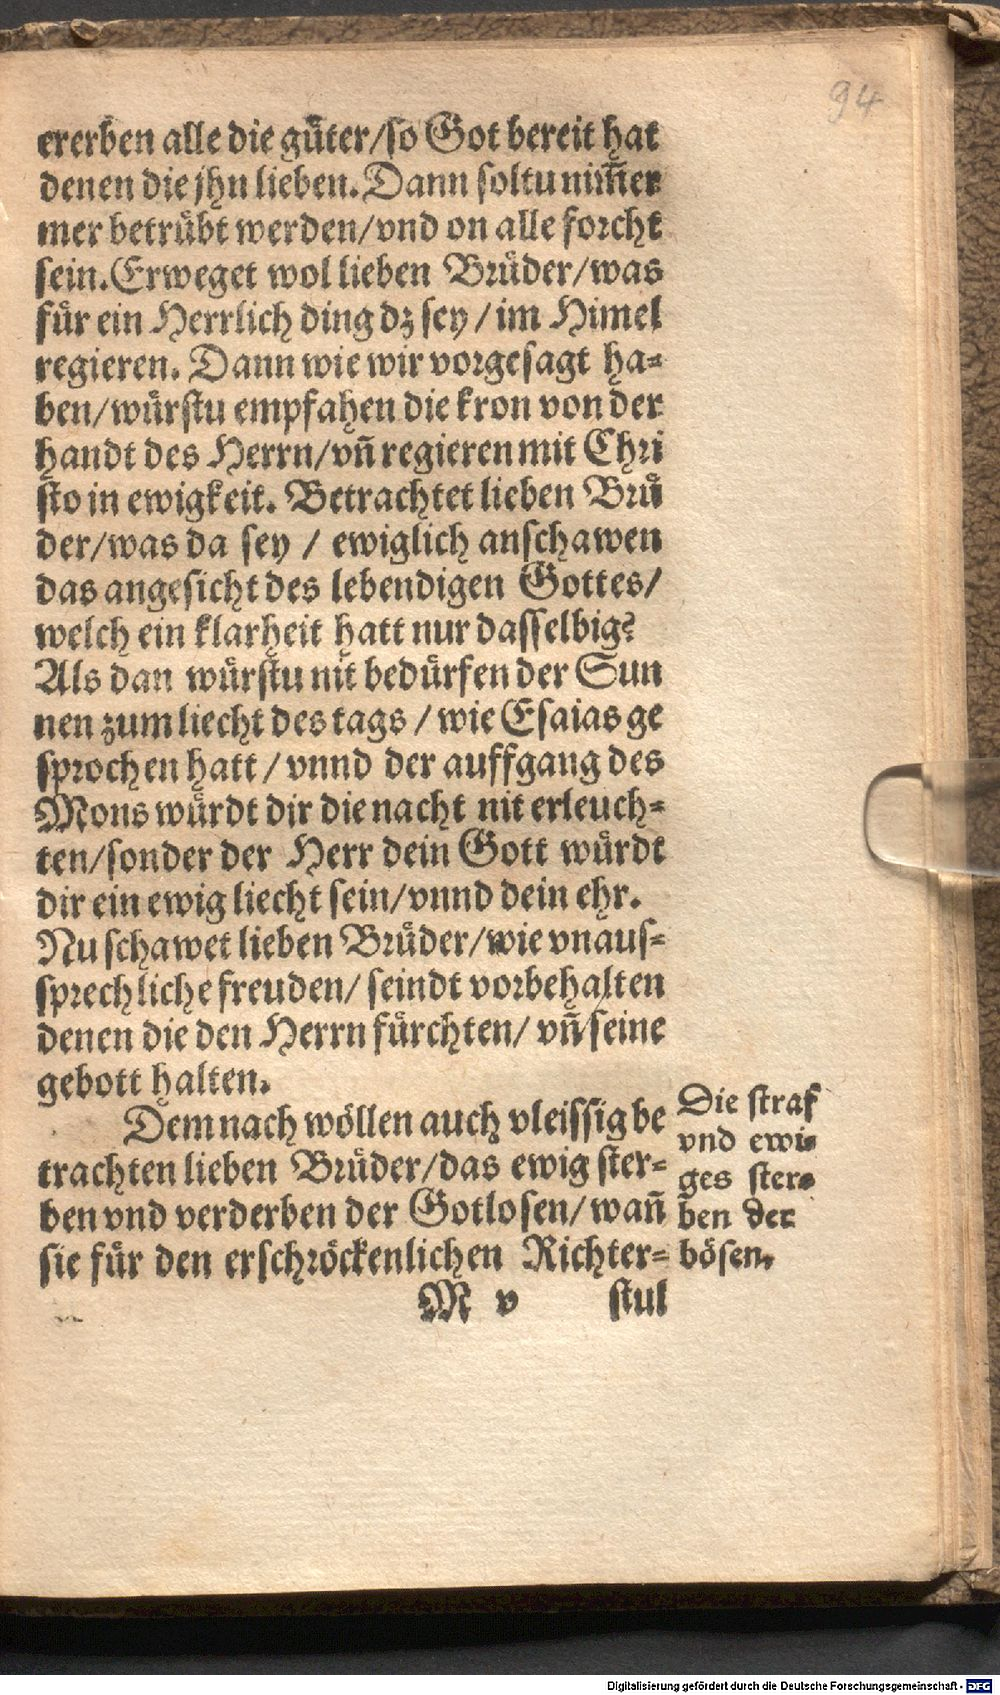 94
ererben alle die guͤter/so Got bereit hat
denen die jhn lieben. Dann soltu nim̃er
mer betruͤbt werden/vnd on alle forcht
sein. Erweget wol lieben Bruͤder/was
fuͤr ein Herrlich ding dz sey / im Himel
regieren. Dann wie wir vorgesagt ha=
ben/wuͤrstu empfahen die kron von der
handt des Herrn/vñ regieren mit Chri
sto in ewigkeit. Betrachtet lieben Bruͤ
der/was da sey / ewiglich anschawen
das angesicht des lebendigen Gottes/
welch ein klarheit hatt nur dasselbig?
Als dan wuͤrstu nit beduͤrfen der Sun
nen zum liecht des tags / wie Esaias ge
sprochen hatt / vnnd der auffgang des
Mons wuͤrdt dir die nacht nit erleuch=
ten/sonder der Herr dein Gott wuͤrdt
dir ein ewig liecht sein/vnnd dein ehr.
Nu schawet lieben Bruͤder/wie vnaus=
sprechliche freuden/ seindt vorbehalten
denen die den Herrn fuͤrchten/ vñ seine
gebott halten.
Demnach woͤllen auch vleissig be
trachten lieben Bruͤder/das ewig ster=
ben vnd verderben der Gotlosen/ wañ
sie fuͤr den erschroͤckenlichen Richter=
M v stul
Die straf
vnd ewi=
ges ster=
ben der
boͤsen.
Digitalisierung gefördert durch die Deutsche Forschungsgemeinschaft - DFG